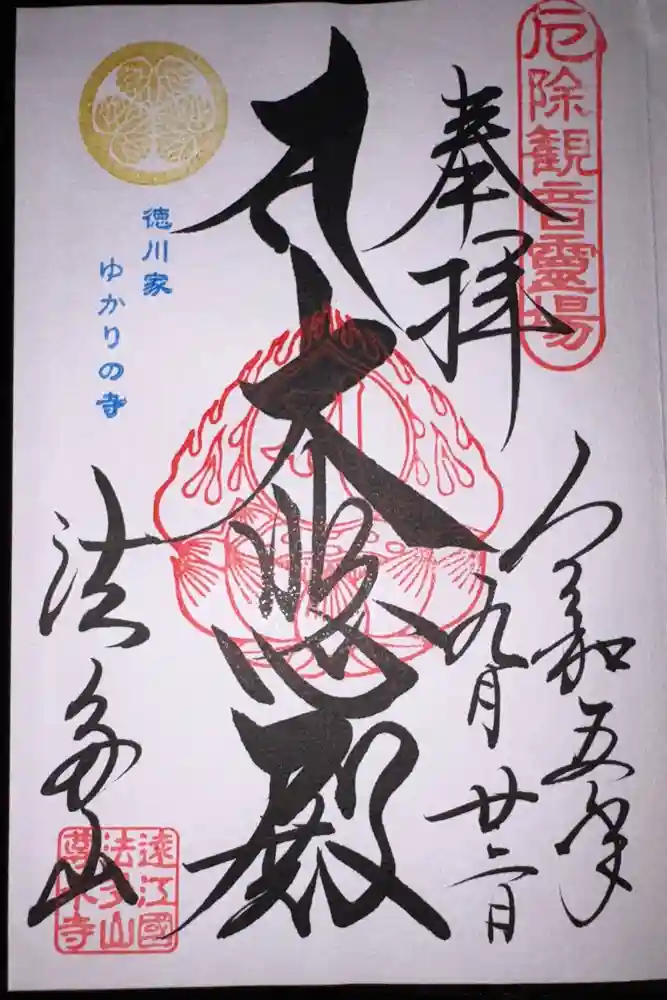 厄除観音霊場
奉拝
令和五年
九月廿二日
大悲殿
法多山
徳川家
ゆかりの寺
遠江國
法多山
尊永寺